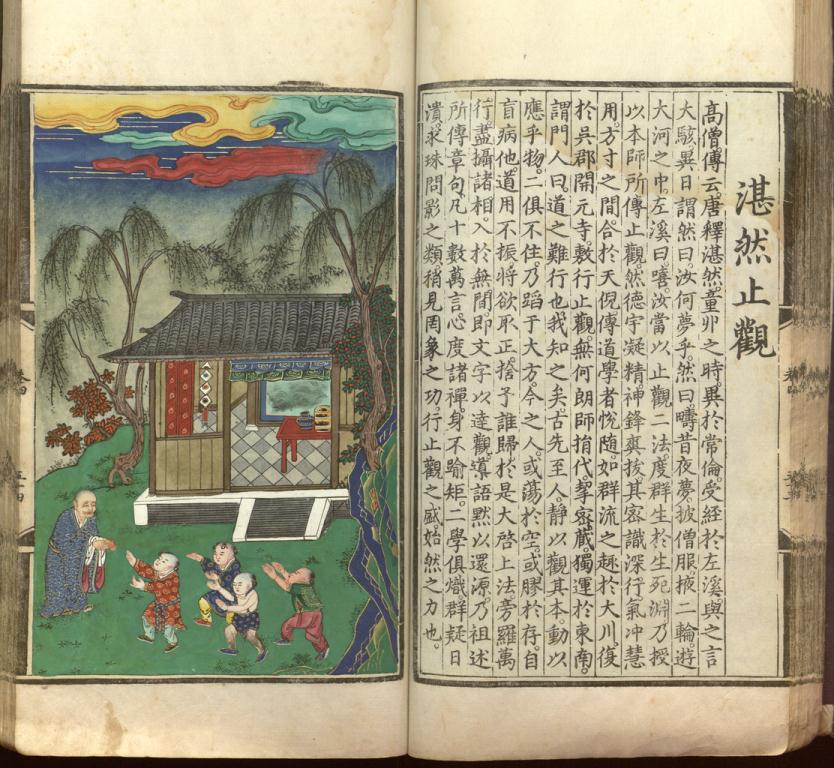 湛然止觀
高僧傳云。唐釋湛然。童丱之時。異於常倫。受經於左溪。與之言
大駭。異日謂然曰。汝何夢乎。然曰。疇昔夜夢。披僧服。掖二輪。遊
大河之中。左溪曰。嘻。汝當以止觀二法。度群生於生死淵。乃授
以本師所傳止觀。然德宇凝精。神鋒爽拔。其密識深行。氣冲慧
用。方寸之間。合於天倪。傳道學者。悅隨。如群流之趣於大川。復
於吳郡開元寺。敷行止觀。無何朗師捐代。挈密藏。獨運於東南。
謂門人曰。道之難行也。我知之矣。古先至人。靜以觀其本。動以
應乎物。二俱不住。乃蹈于大方。今之人。或蕩於空。或膠於存。自
盲病他。道用不振。將欲取正。捨予誰歸。於是大啓上法。旁羅萬
行。盡攝諸相。入於無間。即文字以達觀。導語默以還源。乃祖述
所傳章句。凡十數萬言。心度諸禪。身不踰矩。二學俱熾。群疑日
潰。求珠問影之類。稍見罔象之功。行止觀之盛。始然之力也。